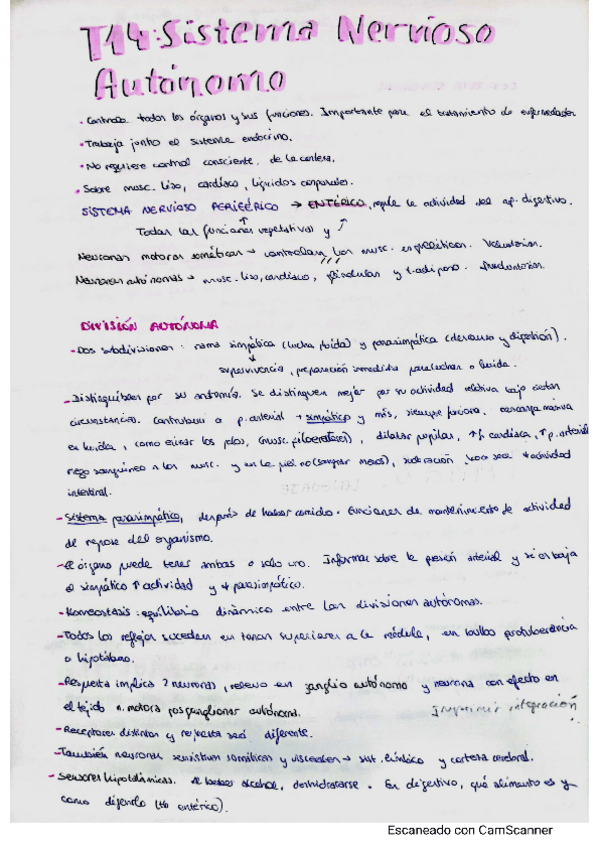 T14: Sistema Nervioso
Autónomo
· Controla todos los órganos y sus funciones. Importante para el tratamiento de enfermedades
· Trabaja junto al sistema endocrino.
· No requiere control consciente, de la corteza.
· Sobre musc. liso, cardiaco, líquidos corporales.
SISTEMA NERVIOSO PERIFÉRICO → ENTÉRICO, regula la actividad del ap. digestivo.
Todas las funciones vegetativas y
Neuronas motoras somáticas → controlan los musc. esqueléticos. Voluntarios.
Neuronas autónomas → musc. liso, cardiaco, glándulas y t. adiposo. Involuntarios.
DIVISIÓN AUTÓNOMA
- Dos subdivisiones: rama simpática (lucha / huida) y parasimpática (descanso y digestión).
supervivencia, preparación inmediata para luchar o huida.
- Distinguibles por su anatomía. Se distinguen mejor por su actividad relativa bajo ciertas
circunstancias. p. arterial simpático y más, siempre funciona. descarga masiva
en huida, como erizar los pelos, (musc. piloerectores), dilatar pupilas, ↑f. cardiaca, ↑p. arterial
riego sanguíneo a los musc. y en la piel no (sangrar menos), sudoración, boca seca actividad
intestinal.
- Sistema parasimpático, después de haber comido. Funciones de mantenimiento de actividad
de reposo del organismo.
- órgano puede tener ambas o solo uno. Informar sobre la presión arterial y si es baja
el simpático ↑ actividad y parasimpático.
- Homeostasis: equilibrio dinámico entre las divisiones autónomas.
- Todos los reflejos suceden en zonas superiores a la médula, en bulbo protuberancia
o hipotálamo.
- Respuesta implica 2 neuronas, relevo en ganglio autónomo y neurona con efecto en
el tejido n. motora posganglionar autónoma.
Imprimir integración
- Receptores distintos y respuesta será diferente.
- También neuronas sensitivas somáticas y viscerales → sist. límbico y corteza cerebral.
- Sensores hipotalámicos. Al beber alcohol, deshidratarse. En digestivo, qué alimento es y
como digerirlo (entérico).
Escaneado con CamScanner